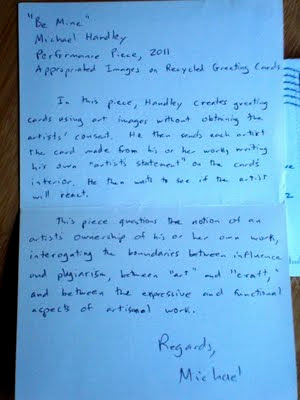 "Be Mine"
Michael Handley
Performance Piece, 2011
Appropriated Images on Recycled Greeting Cards
In this piece, Handley creates greeting
cards using art images without obtaining the
artists' consent. He then sends each artist
the card made from his or her work, writing
his own "artist's statement" on the card's
interior. He then waits to see if the artist
will react.
This piece questions the notion of an
artist's ownership of his or her own work,
interogating the boundaries between influence
and plagiarism, between "art" and "craft,"
and between the expressive and functional
aspects of artisanal work.
Regards,
Michael